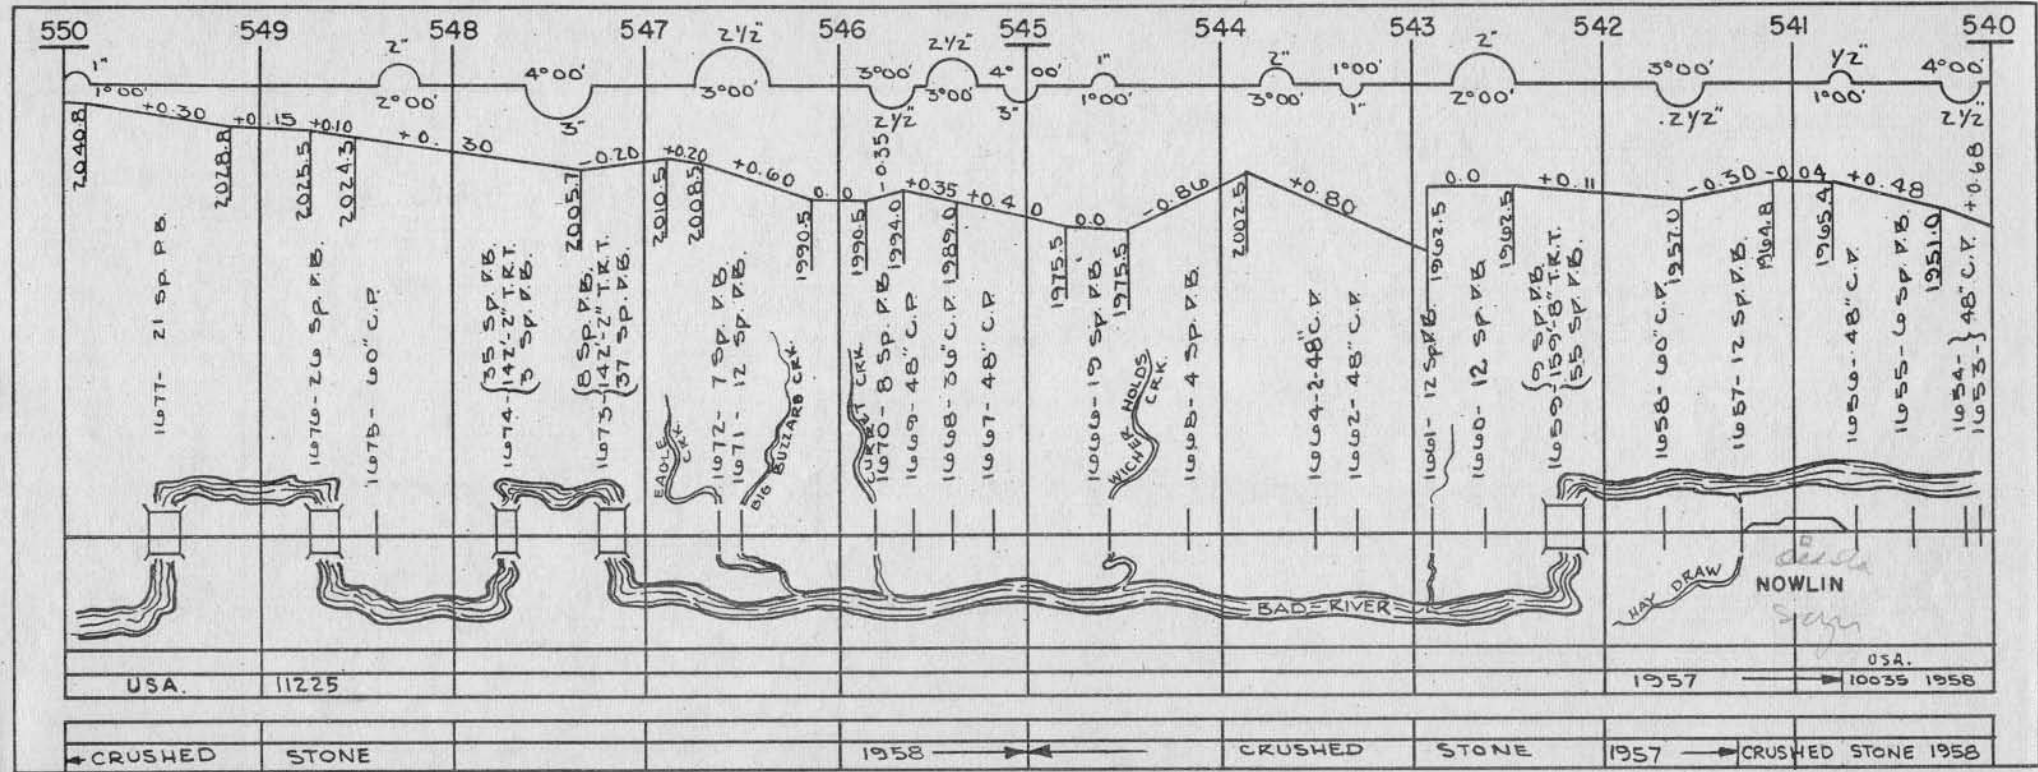 550 549 548 547 546 545 544 543 542 541 540
1" 2" 4°00' 2½" 3°00' 2½" 4°00' 1" 2" 1°00' 2" 3°00' ½" 4°00'
1°00' 2°00' 3" 3°00' 2½" 3°00' 3" 1°00' 3°00' 1" 2°00' 2½" 1°00' 2½"
+0.30 +0.15 +0.10 +0.30 -0.20 +0.20 +0.60 0.0 -0.355 +0.35 +0.40 0.0 -0.86 +0.80 0.0 +0.11 -0.30 -0.04 +0.48 +0.68
2040.8
2028.8
2025.5
2024.3
2005.7
2010.5
2008.5
1990.5
1990.5
1994.0
1989.0
1975.5
1975.5
2002.5
1962.5
1962.5
1957.0
1964.8
1965.4
1951.0
1677- 21 Sp. P.B.
1676- 26 Sp. P.B.
1675- 60" C.P.
1674- {35 Sp. P.B.
142'-2" T.R.T.
3 Sp. P.B.
1673- {8 Sp. P.B.
142'-2" T.R.T.
37 Sp. P.B.
EAGLE CRK.
1672- 7 Sp. P.B.
1671- 12 Sp. P.B.
BIG BUZZARB CRK.
CURRET CRK
1670- 8 Sp. P.B.
1669- 48" C.P.
1668- 36" C.P.
1667- 48" C.P.
1666- 19 Sp. P.B.
WICHER HOLDS CRK.
1665- 4 Sp. P.B.
1664-2-48" C.P.
1662- 48" C.P.
1661- 12 Sp. P.B.
1660- 12 Sp. P.B.
1659- {9 Sp. P.B.
159'-8" T.R.T.
55 Sp. P.B.
1658- 60" C.P.
1657- 12 Sp. P.B.
1656- 48" C.P.
1655- 6 Sp. P.B.
1654- }
1653- } 48" C.P.
BAD RIVER
HAY DRAW
NOWLIN
USA. 11225
USA.
1957 10035 1958
CRUSHED STONE 1958 CRUSHED STONE 1957 CRUSHED STONE 1958